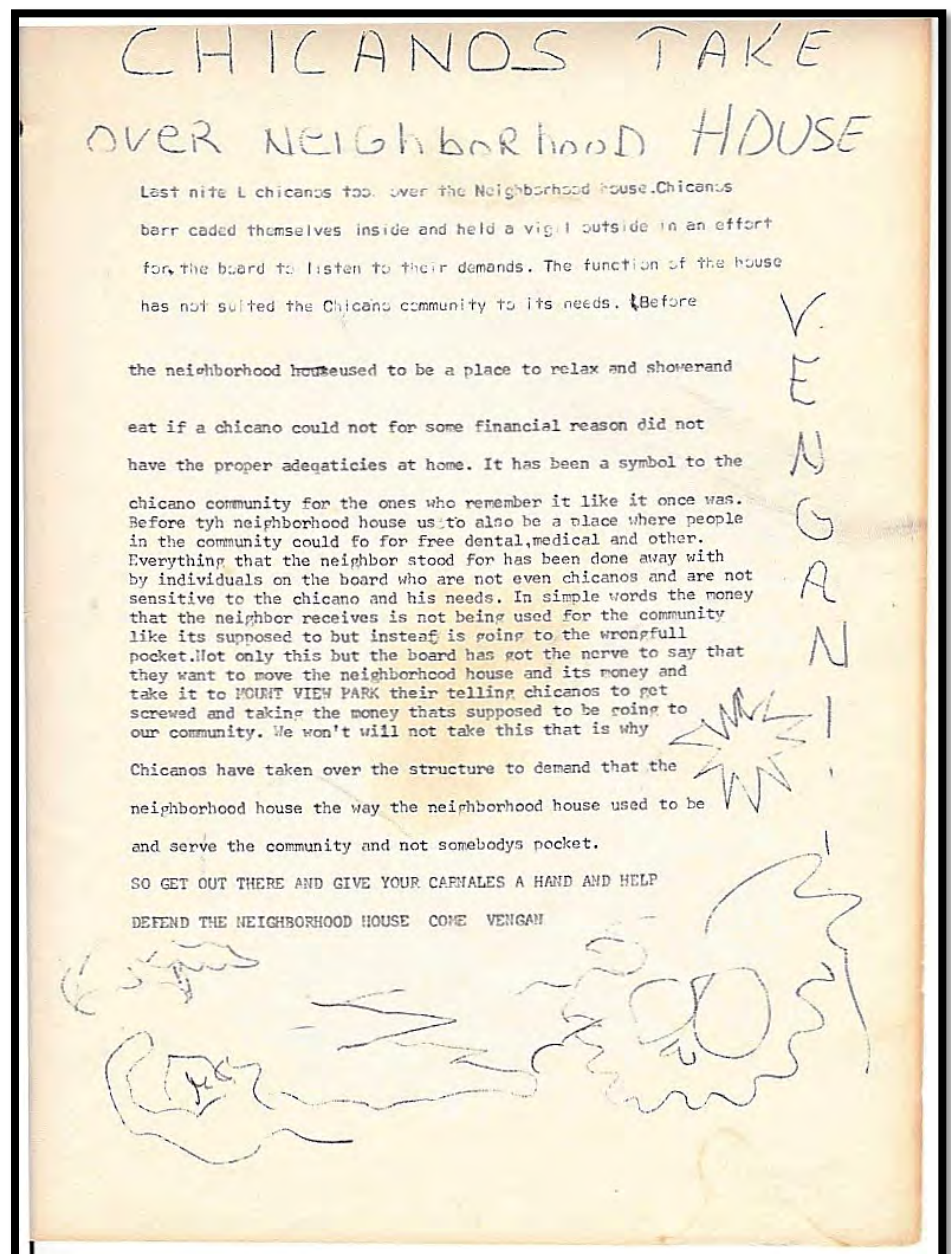 CHICANOS TAKE
OVER NEIGhboRhooD HOUSE
Last nite L chicanos too over the Neighborhood house.Chicanos
barr caded themselves inside and held a vigil outside in an effort
for the board to listen to their demands. The function of the house
has not suited the Chicano community to its needs. Before
the neighborhood houseused to be a place to relax and showerand
eat if a chicano could not for some financial reason did not
have the proper adeqaticies at home. It has been a symbol to the
chicano community for the ones who remember it like it once was.
Before tyh neighborhood house us to also be a place where people
in the community could fo for free dental,medical and other.
Everything that the neighbor stood for has been done away with
by individuals on the board who are not even chicanos and are not
sensitive to the chicano and his needs. In simple words the money
that the neighbor receives is not being used for the community
like its supposed to but insteaf is going to the wrongfull
pocket.Not only this but the board has got the nerve to say that
they want to move the neighborhood house and its money and
take it to MOUNT VIEW PARK their telling chicanos to get
screwed and taking the money thats supposed to be going to
our community. We won't will not take this that is why
Chicanos have taken over the structure to demand that the
neighborhood house the way the neighborhood house used to be
and serve the community and not somebodys pocket.
SO GET OUT THERE AND GIVE YOUR CARNALES A HAND AND HELP
DEFEND THE NEIGHBORHOOD HOUSE COME VENGAN
VENGAN!!